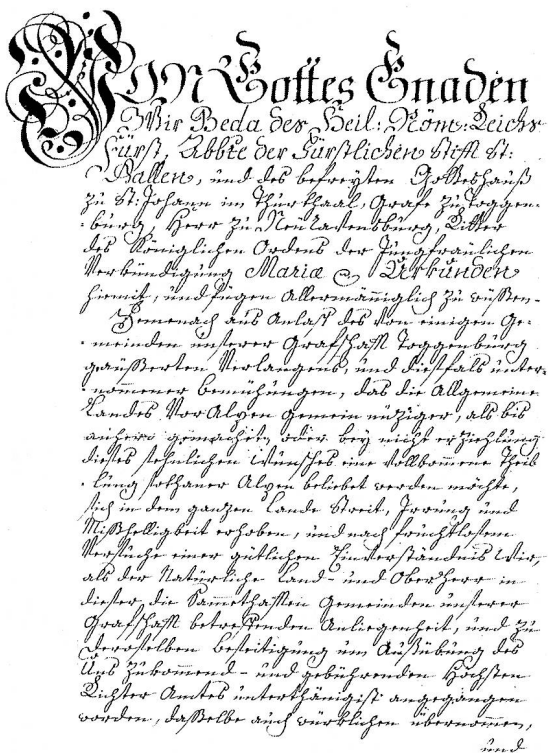 VON Gottes Gnaden
Wir Beda des Heil: Röm: Reichs
Fürst, Abbte der Fürstlichen Stifft St:
Gallen, und des befreyten Gotteshauß
zu St: Johann im Thurthaal, Grafe zu Toggen-
-burg, Herr zu Neüravensburg, Ritter
des Königlichen Ordens der Jungfräulichen
Verkündigung Mariæ Urkunden
hiemit, und fügen Allermäniglich zu wüßen-
Demenach aus Anlaß des von einigen Ge-
-meinden unserer Grafschafft Toggenburg
geäußerten Verlangens, und diesfals unter-
-nommener bemühungen, das die Allgemeine
Landes Vor Alpen gemein nüziger, als bis
anhero gemachet, oder bey nicht erziehlung
dießes sehnlichen Wunsches eine vollkommene Theil
-lung sothaner Alpen beliebet werden möchte,
sich in dem ganzen Lande Streit, Irrung und
Mißhelligkeit erhoben, und nach fruchtlosem
Versuche einer gütlichen Einverständnis Wir,
als der Natürliche Land- und Oberherr in
dieser, die Sammethafften Gemeinden unserer
Grafschafft betreffenden Anliegenheit, und zu
Derselben beseitigung um Außübung des
Uns zukommend- und gebührenden Höchsten
Richter Amtes unterthänigist angegangen
worden, daßselbe auch würklichen übernommen,
und